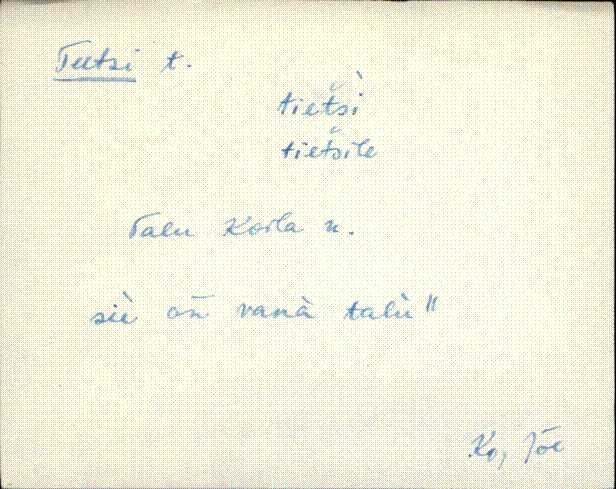 Teetsi t.
tietšì̬
tietšile
Talu Koila n.
siè on̄ vanà talù"
Ko, Jõe